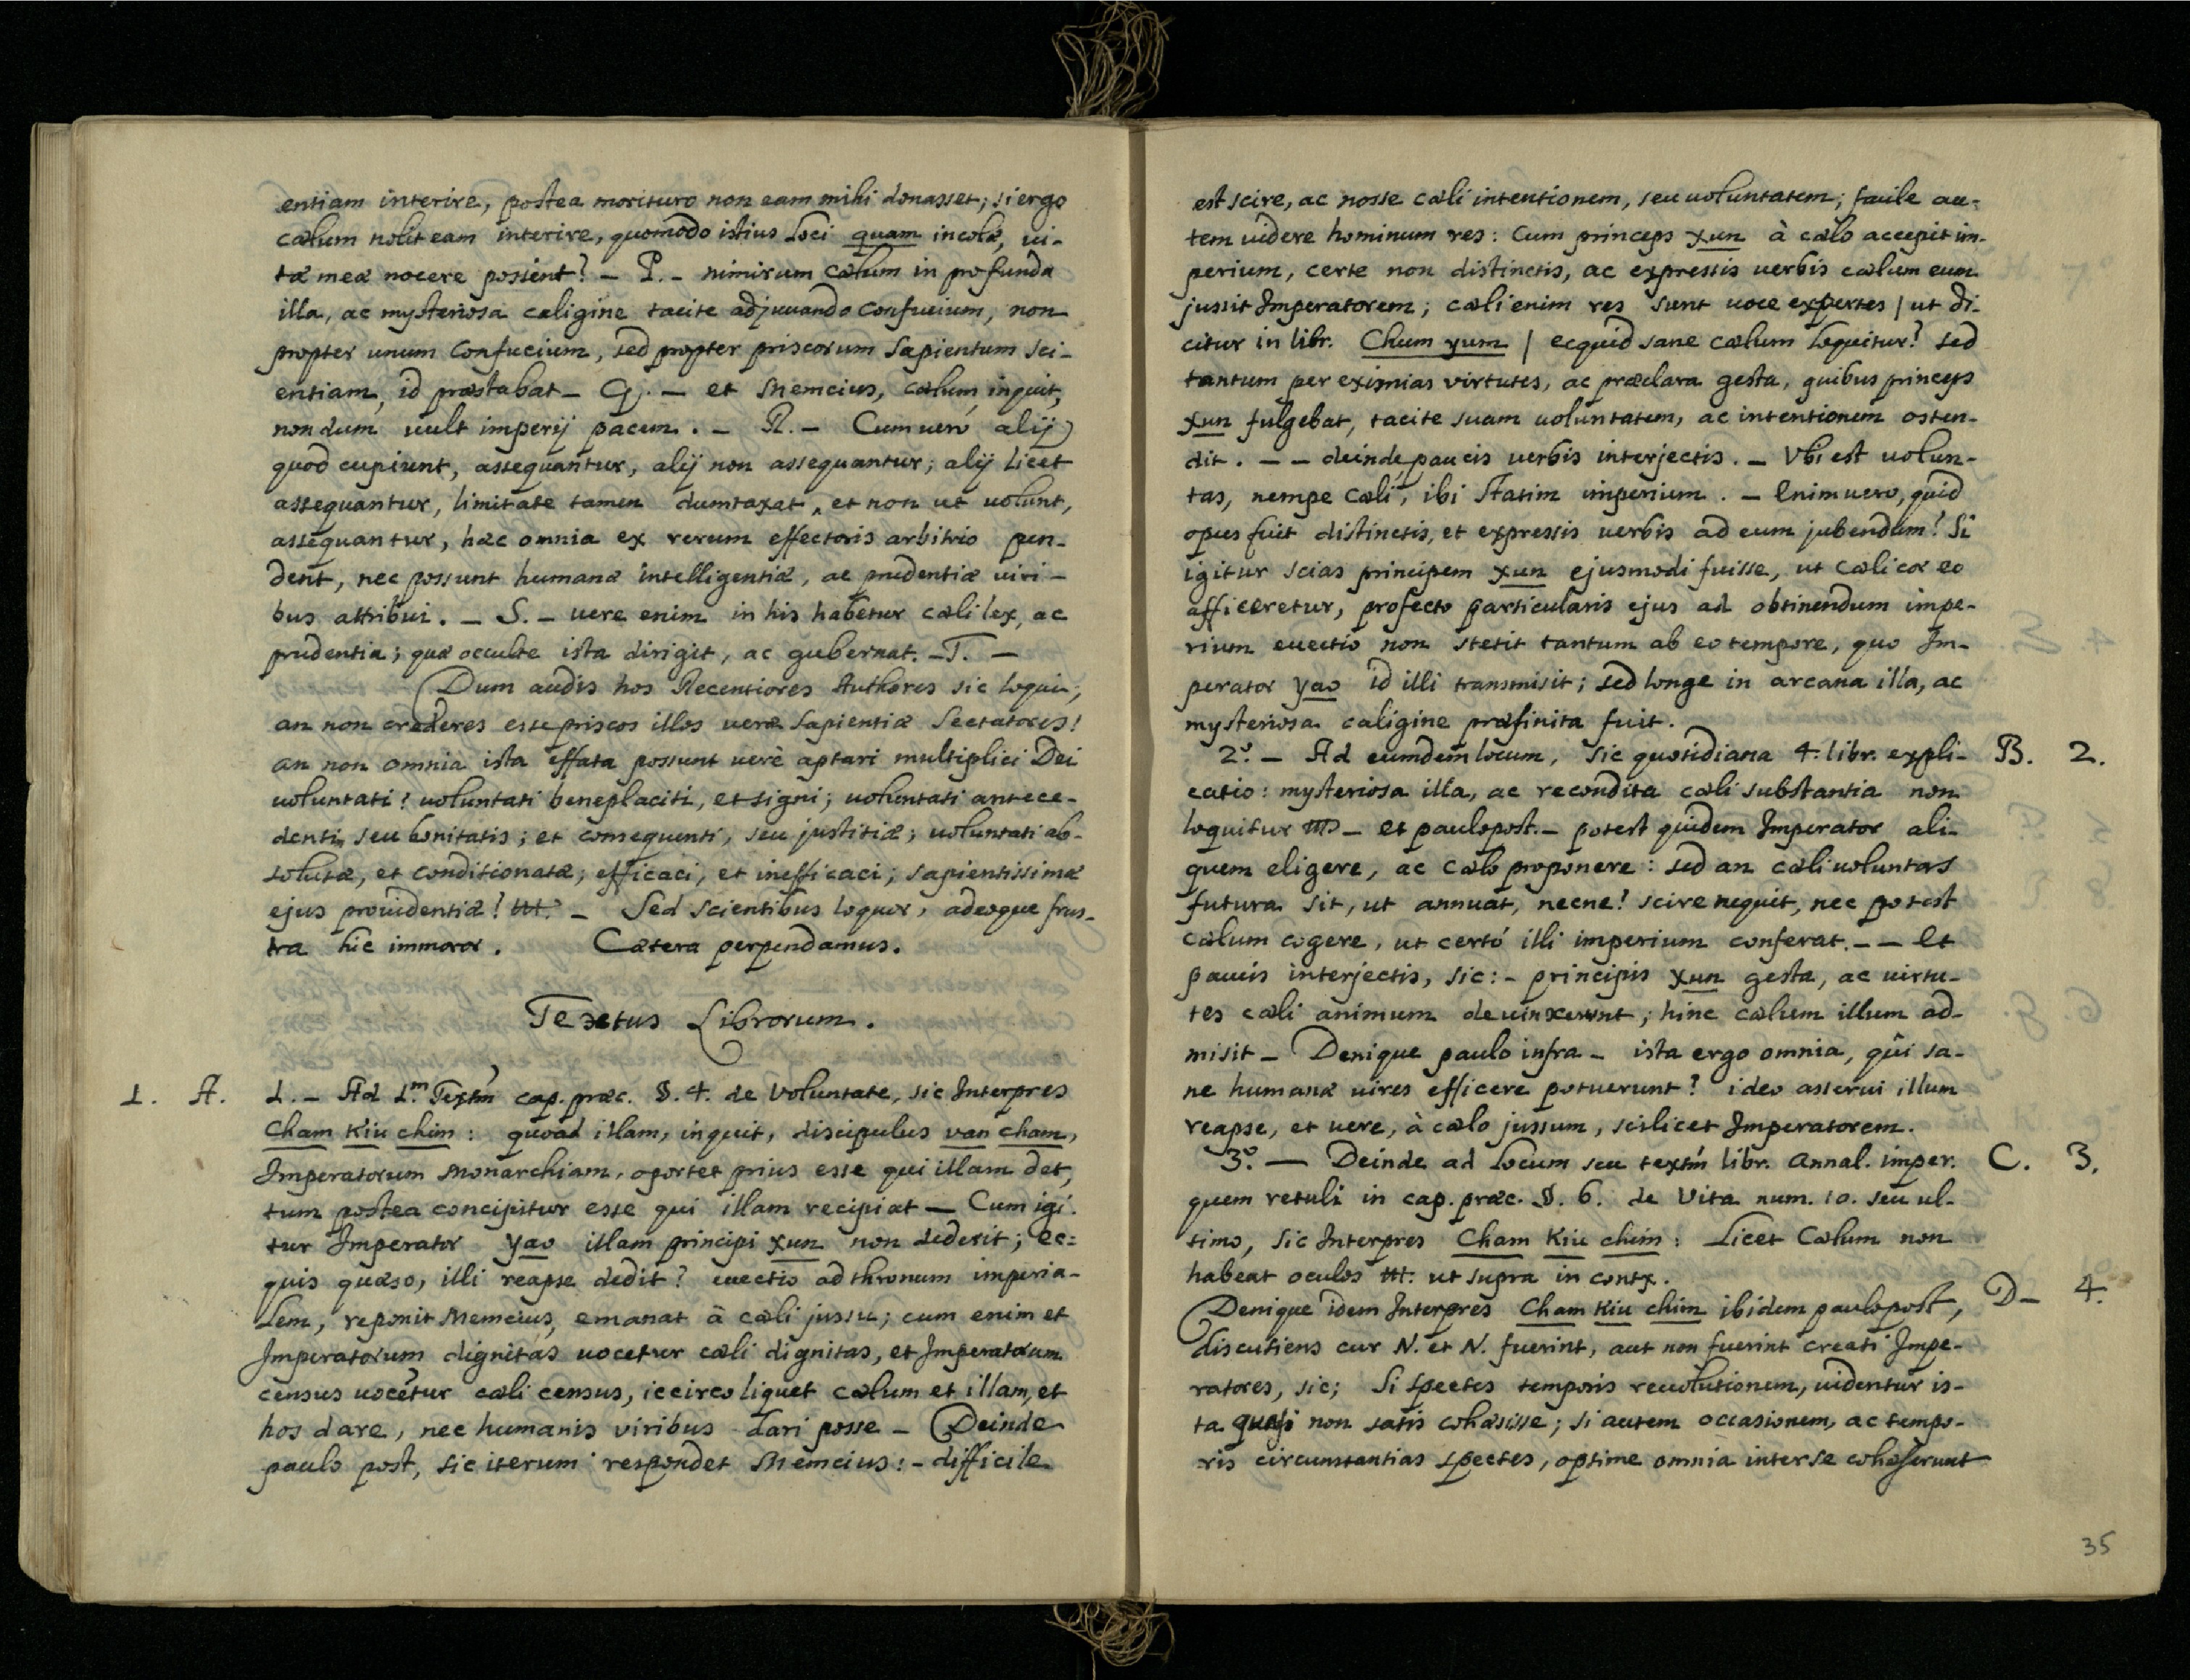 entiam interire, postea morituro non eam mihi donasset; si ergo
cælum nolit eam interire, quomodo istius loci quam incolæ, vi-
tæ meæ nocere possent? - P. - nimirum cælum in profunda
illa, ac mysteriosa caligine tacite adjuvando Confucium, non
propter unum Confucium, sed propter priscorum Sapientum sci-
entiam, id præstabat - Q. - et Memcius, cælum, inquit,
nondum vult imperij pacem. - R. - Cum vero alij
quod cupiunt, assequantur, alij non assequantur; alij licet
assequantur, limitate tamen dumtaxat, et non ut volunt,
assequantur, hæc omnia ex rerum effectoris arbitrio pen-
dent, nec possunt humanæ intelligentiæ, ac prudentiæ viri-
bus attribui. - S. - vere enim in his habetur cæli lex, ac
prudentia; quæ occulte ista dirigit, ac gubernat. - T. -
Dum audis hos Recentiores Authores sic loqui;
an non crederes esse priscos illos veræ Sapientiæ Sectatores!
an non omnia ista effata possunt verè aptari multiplici Dei
voluntati? voluntati beneplaciti, et signi; voluntati antece-
denti, seu bonitatis; et consequenti, seu justitiæ; voluntati ab-
solutæ, et conditionatæ; efficaci, et inefficaci; sapientissimæ
ejus providentiæ! - Sed scientibus loquor, adeoque frus-
tra hic immoror. Cætera perpendamus.
Textus Librorum.
1. A. 1. - Ad 1.m Textm̃ cap. præc. §. 4. de Voluntate, sic Interpres
Cham Kiu chim: quoad illam, inquit, discipulus van cham,
Imperatorum Monarchiam, oportet prius esse qui illam det,
tum postea concipitur esse qui illam recipiat - Cum igi-
tur Imperator yao illam principi xun non dederit; ec=
quis quæso, illi reapse dedit? evectio ad thronum imperia-
lem, reponit Memcius, emanat à cæli jussu; cum enim et
Imperatorum dignitas vocetur cæli dignitas, et Imperatorum
census vocetur cæli census, iccirco liquet cælum et illam, et
hos dare, nec humanis viribus dari posse - Deinde
paulo post, sic iterum respondet Memcius: - difficile
est scire, ac nosse cæli intentionem, seu voluntatem; facile au=
tem videre hominum res: Cum princeps xun à cælo accepit im-
perium, certe non distinctis, ac expressis verbis cælum eum
jussit Imperatorem; cæli enim res sunt voce expertes | ut di-
citur in libr. Chum yum | ecquid sane cælum loquitur? sed
tantum per eximias virtutes, ac præclara gesta, quibus princeps
xun fulgebat, tacite suam voluntatem, ac intentionem osten-
dit. - - deinde paucis verbis interjectis. - Vbi est volun-
tas, nempe Cæli, ibi statim imperium. - Enimvero, quid
opus fuit distinctis, et expressis verbis ad eum jubendum? Si
igitur scias principem xun ejusmodi fuisse, ut cæli cor eo
afficeretur, profecto particularis ejus ad obtinendum impe-
rium evectio non stetit tantum ab eo tempore, quo Im-
perator yao id illi transmisit; sed longe in arcana illa, ac
mysteriosa caligine præfinita fuit.
2.º - Ad eumdem locum, sic quotidiana 4. libr. expli- B. 2.
catio: mysteriosa illa, ac recondita cæli substantia non
loquitur - et paulopost. - potest quidem Imperator ali-
quem eligere, ac cælo proponere: sed an cæli voluntas
futura sit, ut annuat, necne! scire nequit, nec potest
cælum cogere, ut certó illi imperium conferat. - - Et
paucis interjectis, sic: - principis xun gesta, ac virtu-
tes cæli animum devinxerunt; hinc cælum illum ad-
misit - Denique paulo infra - ista ergo omnia, qui sa-
ne humanæ vires efficere potuerunt? ideo asserui illum
reapse, et vere, à cælo jussum, scilicet Imperatorem.
3.º - Deinde ad Locum seu textm̃ libr. Annal. imper. C. 3.
quem retuli in cap. præc. §. 6. de Vita num. 10. seu ul-
timo, sic Interpres Cham Kiu chim: Licet Cælum non
habeat oculos ut supra in contx.
Denique idem Interpres Cham Kiu chim ibidem paulopost, D - 4.
discutiens cur N. et N. fuerint, aut non fuerint creati Impe-
ratores, sic; Si spectes temporis revolutionem, videntur is-
ta quasi non satis cohæsisse; si autem occasionem, ac tempo-
ris circumstantias spectes, optime omnia inter se cohæserunt
35